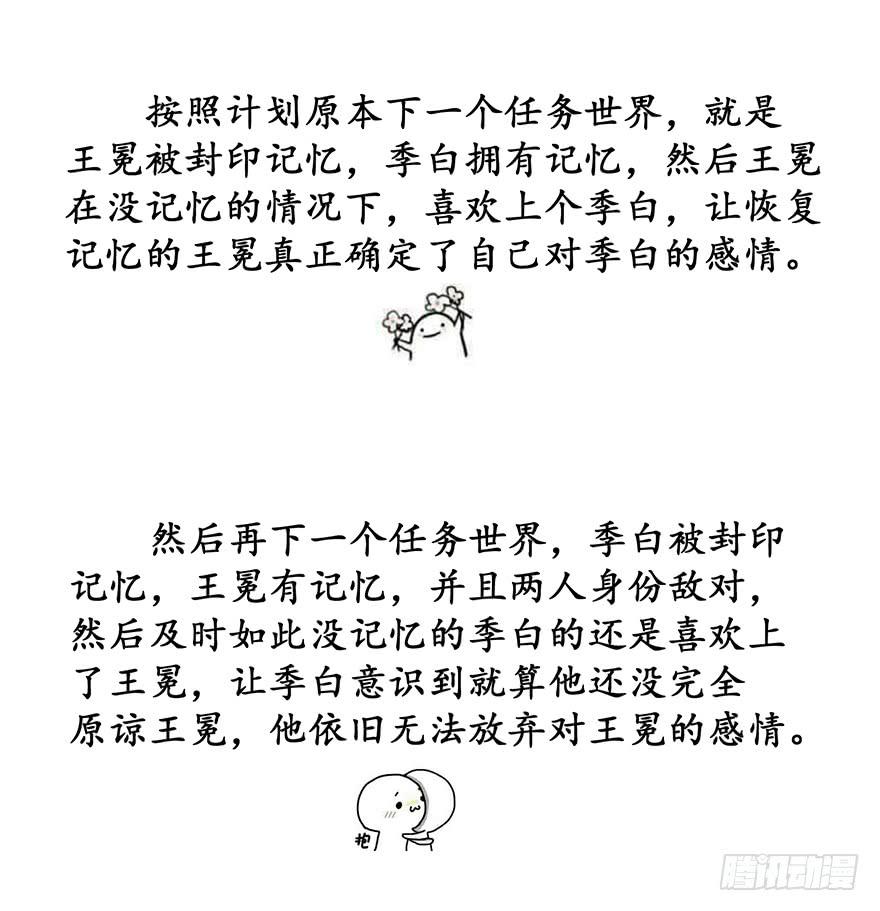 按照计划原本下一个任务世界，就是
王冕被封印记忆，季白拥有记忆，然后王冕
在没记忆的情况下，喜欢上个季白，让恢复
记忆的王冕真正确定了自己对季白的感情。
然后再下一个任务世界，季白被封印
记忆，王冕有记忆，并且两人身份敌对，
然后及时如此没记忆的季白的还是喜欢上
了王冕，让季白意识到就算他还没完全
原谅王冕，他依旧无法放弃对王冕的感情。
抱
腾讯动漫